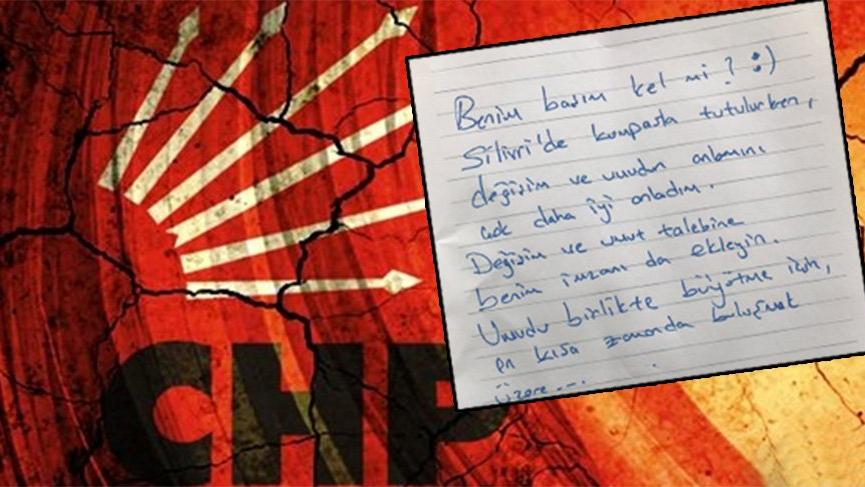 CHP
Benim başım kel mi? :)
Silivri'de kumpasla tutulurken,
değişim ve umudun anlamını
çok daha iyi anladım.
Değişim ve umut talebine
benim imzamı da ekleyin.
Umudu birlikte büyütme için,
en kısa zamanda buluşmak
üzere...